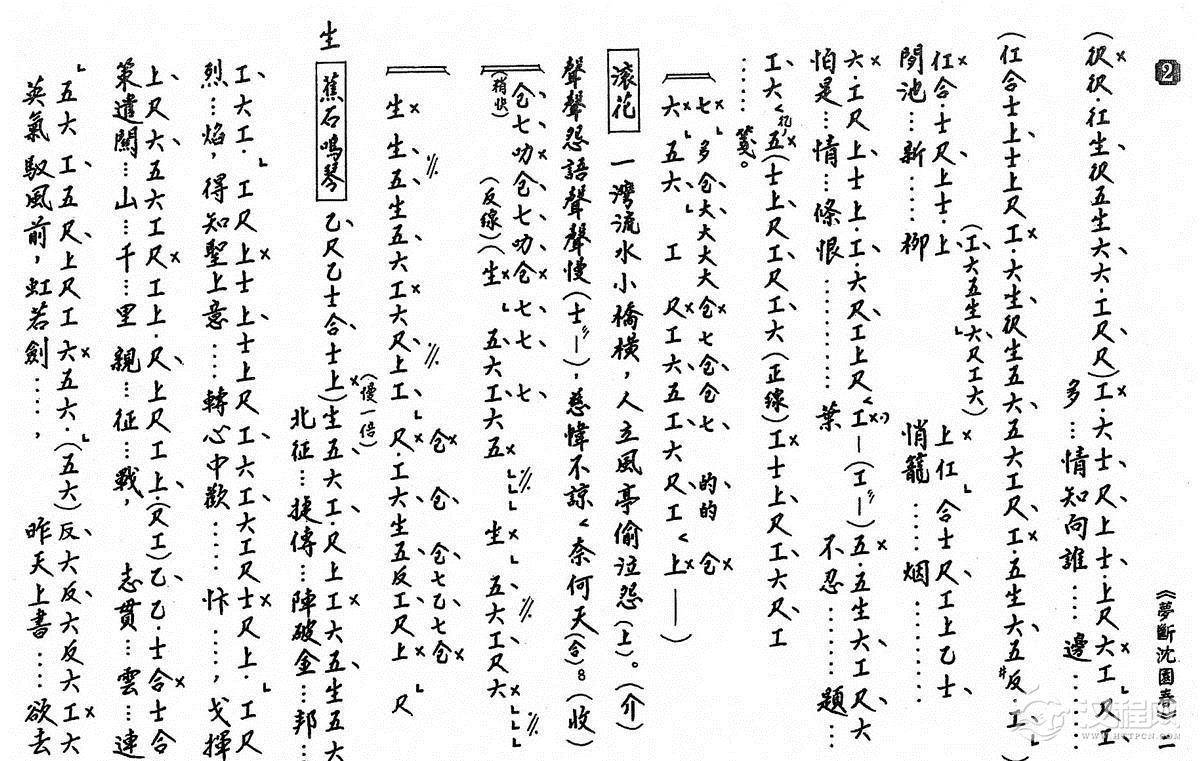 2
《夢斷沈園春》二
(伬伬.仜生伬五生六六.工尺尺)工.六士尺上士.上尺六工尺工
多…情知向誰……邊………
(仜合士上士上尺工.六生伬生五六五六工尺工.五生六五反.工)
(工六五生六尺工六)
仜合.士尺上士.上 上仜合士尺工上乙士
閑池…新……柳 悄籠……烟………
六.工尺上士上.工.六尺工上尺工—(工—)五.五生六工尺六
怕是…情…條恨………葉 不忍……題…
工六五(士上尺工尺工六(正線)工士上尺工六尺工
……箋。
七多仓大大大大仓七仓仓七 的的 仓
六 五六 工 尺工六五工六尺工上——)
滚花 一灣流水小橋橫,人立風亭偷泣怨(上)。(介)
聲聲怨語聲聲慢(士—),慈幃不諒奈何天(合)。(收)
仓七叻仓七叻仓七七 七
(稍快) (反線)(生 五六工六五 生 五六工尺六
生生五生五六工六尺上工 尺.工六生五反工尺上 尺
仓 仓 仓七乙七仓
生 蕉石鳴琴 乙尺乙士合士上)生五六工.尺上工六五生五六
(慢一倍)
北征…捷傳…陣破金…邦…
工六工.工尺上士上士上尺工六工六工尺士尺上.工尺
烈…焰,得知聖上意……轉心中歡……忭……,戈揮
上尺六五六工尺工上.尺上尺工上.(尺工)乙乙.士合士合
策遣關…山…千…里親…征…戰, 志貫…雲…連
五六工五尺上尺工六五六.(五六)反六反六反六工六
英氣馭風前,虹若劍……, 昨天上書……欲去
汉程网
WWW.HTTPCN.COM